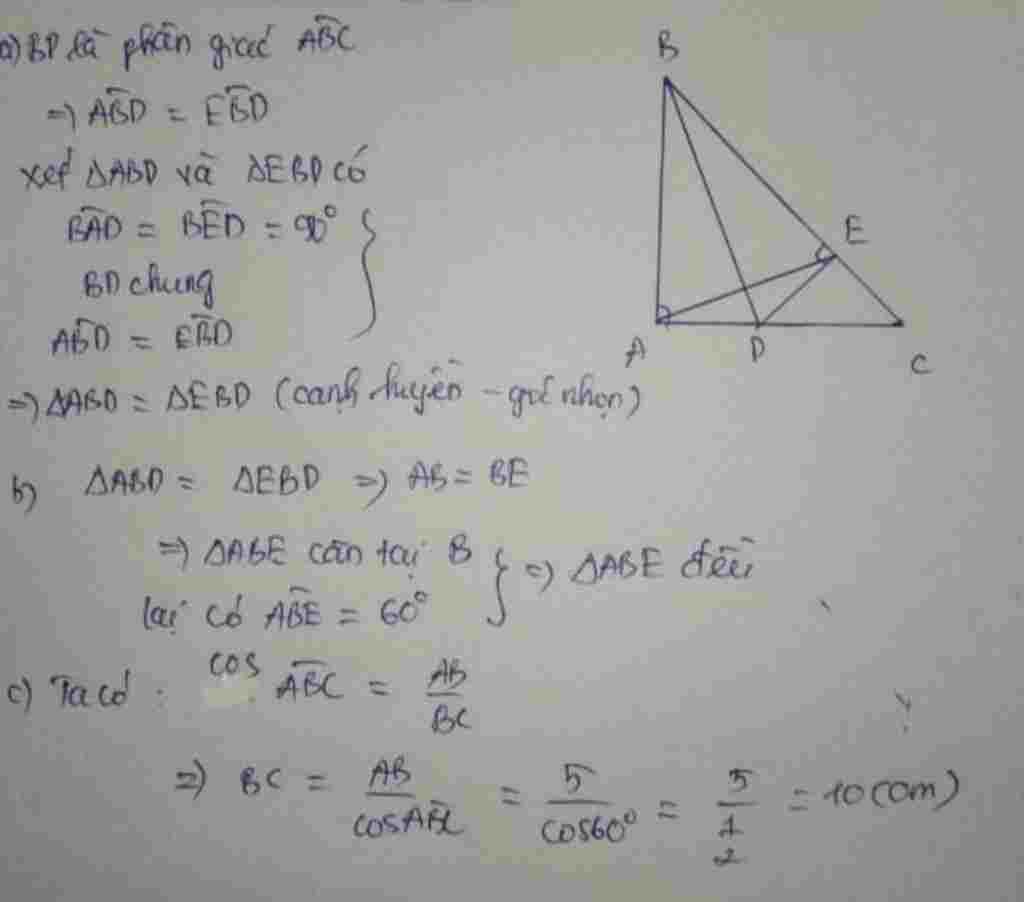 a) BD là phân giác ABC
=> ABD = EBD
xét ΔABD và ΔEBD có
BAD = BED = 90°
BD chung
ABD = EBD
=> ΔABD = ΔEBD (cạnh huyền - góc nhọn)
b) ΔABD = ΔEBD => AB = BE
=> ΔABE cân tại B
lại có ABE = 60°
} => ΔABE đều
c) Ta có : cos ABC = AB/BC
=> BC = AB/cosABC = 5/cos60° = 5/(1/2) = 10 (cm)
B
E
A
D
C